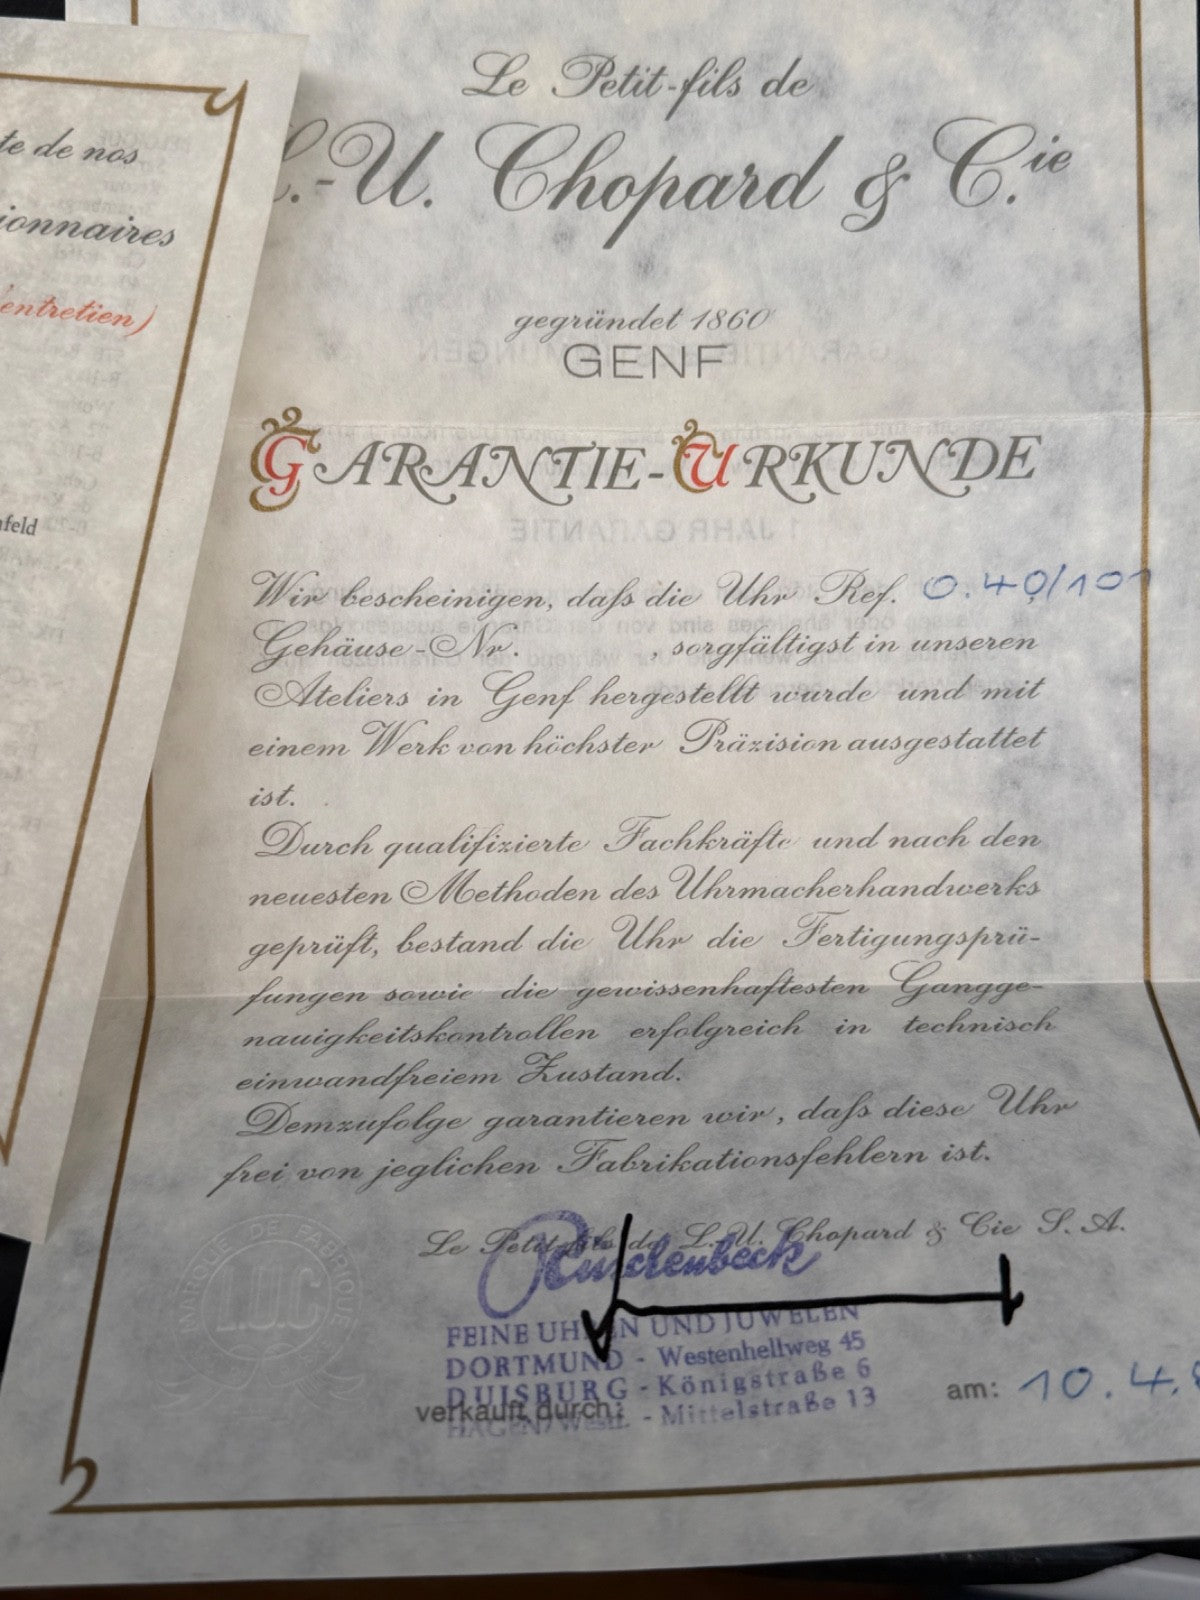 te de nos
ionnaires
entretien)
feld
Le Petit-fils de
L.-U. Chopard & Cie
gegründet 1860
GENF
GARANTIE-URKUNDE
1 JAHR GARANTIE
Wir bescheinigen, daß die Uhr Ref. 0.40/101
Gehäuse-Nr. , sorgfältigst in unseren
Ateliers in Genf hergestellt wurde und mit
einem Werk von höchster Präzision ausgestattet
ist.
Durch qualifizierte Fachkräfte und nach den
neuesten Methoden des Uhrmacherhandwerks
geprüft, bestand die Uhr die Fertigungsprü-
fungen sowie die gewissenhaftesten Gangge-
nauigkeitskontrollen erfolgreich in technisch
einwandfreiem Zustand.
Demzufolge garantieren wir, daß diese Uhr
frei von jeglichen Fabrikationsfehlern ist.
Le Petit-fils de L.-U. Chopard & Cie S.A.
Rüschenbeck
FEINE UHREN UND JUWELEN
DORTMUND - Westenhellweg 45
DUISBURG - Königstraße 6
HAGEN/Westf. - Mittelstraße 13
verkauft durch:
am: 10.4.
MARQUE DE FABRIQUE
L.U.C